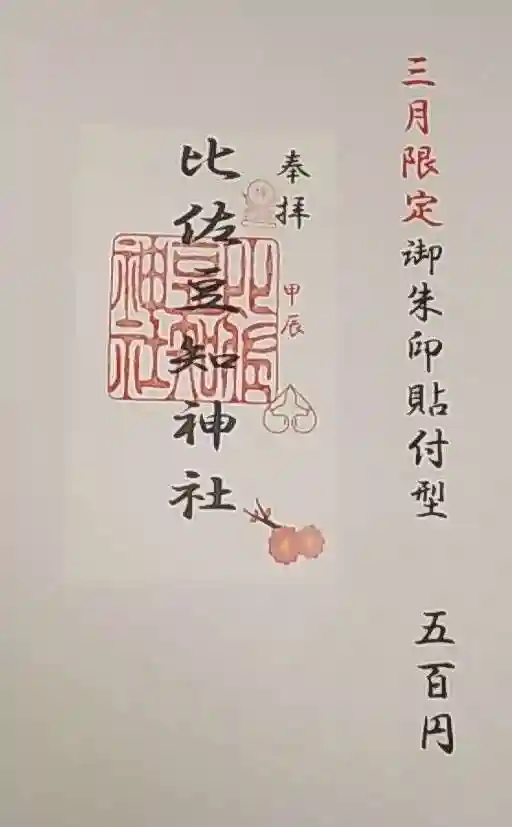 三月限定御朱印貼付型 五百円
奉拝
甲辰
比佐豆知神社
比佐豆知神社